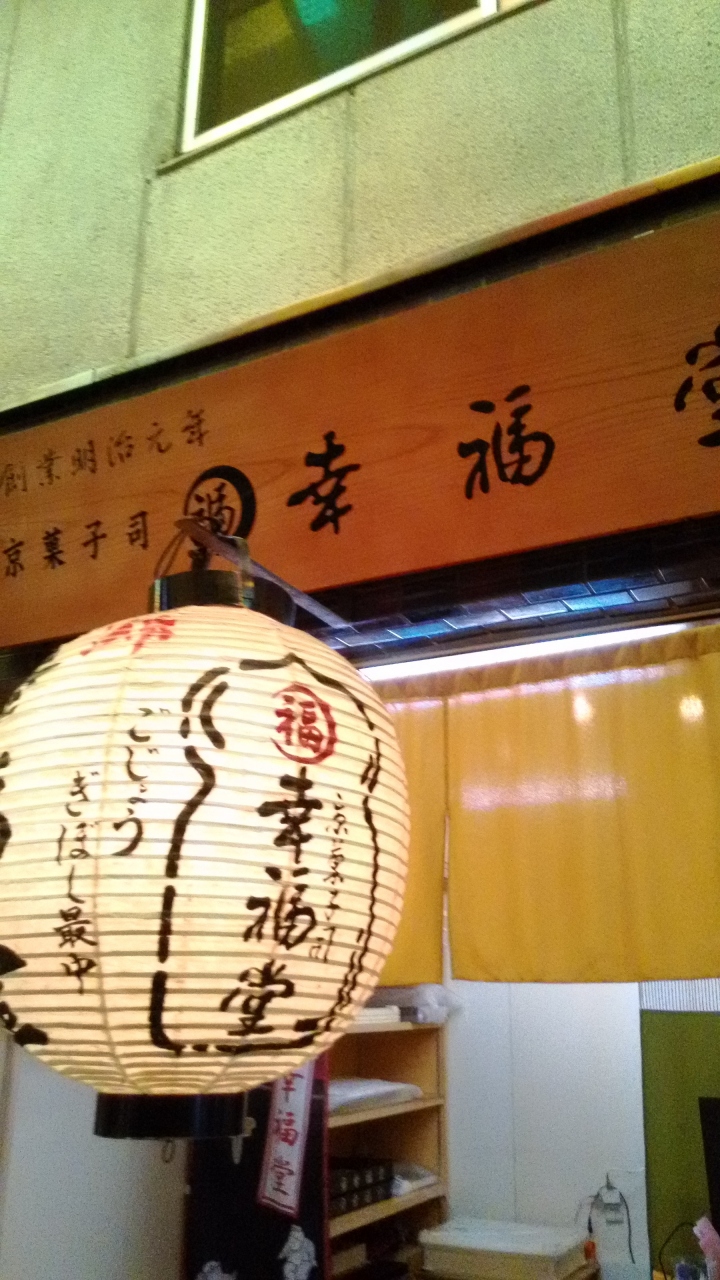 創業明治元年
京菓子司
福
幸福堂
福
京菓子司
幸福堂
ごじょう
ぎぼし最中
幸福堂